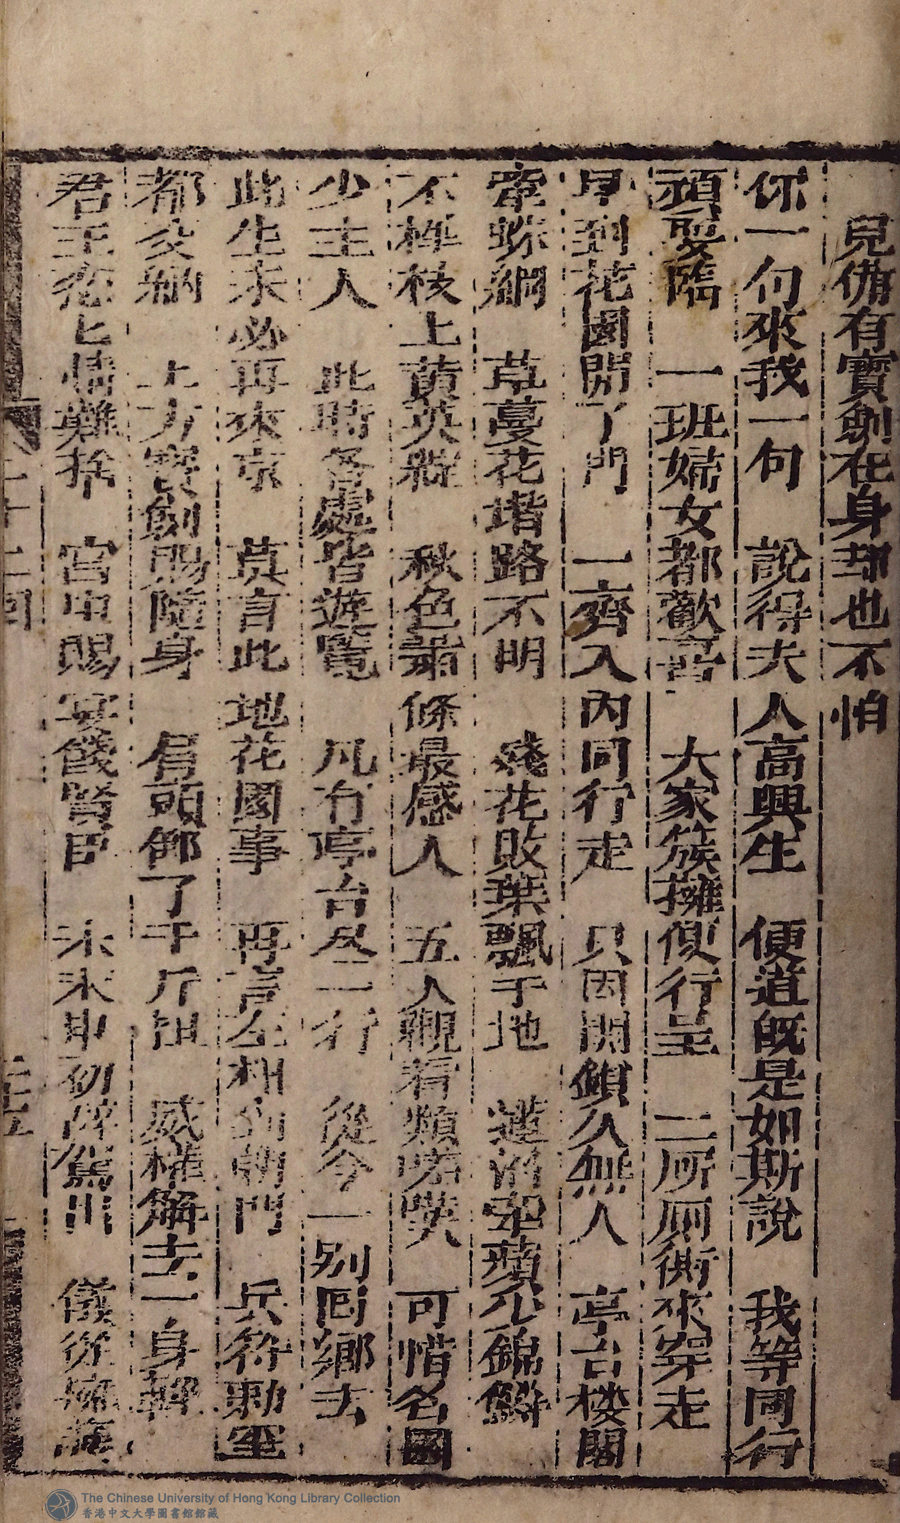 見備有寶劍在身却也不怕
你一句來我一句 說得夫人高興生 便道旣是如斯說 我等同行
須要臨 一班婦女都歡喜 大家簇擁便行呈 二所厠衖來穿走
早到花園開了門 一齊入內同行走 只因開鎖久無人 亭台楼閣
牽蛛網 草蔓花堦路不明 殘花敗葉飄于地 蓮沼牽蘋少錦鱗
不 枝上黄英 秋色蕭條最感人 五人觀看頻嗟嘆 可惜名園
少主人 此時各處皆遊覽 凡有亭台尽一行 從今一别囘鄉去
此生未必再來京 莫言此地花園事 再言左相到朝門 兵符勅宝
都交納 上方寳劍賜隨身 肩頭卸了千斤担 威權解去一身輕
君王恋匕情難捨 宮中賜宴餞賢臣 未末申初辭駕出 儀從
二十二囬
The Chinese University of Hong Kong Library Collection
香港中文大學圖書館館藏